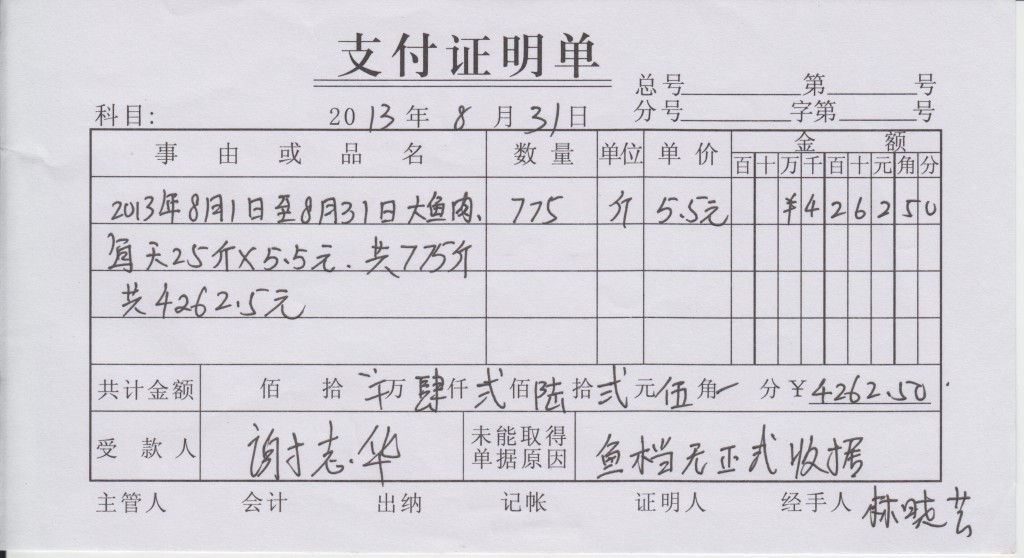 支付证明单
总号 第 号
科目: 2013年8月31日 分号 字第 号
事由或品名 数量 单位 单价 金额
百十万千百十元角分
2013年8月1日至8月31日大鱼肉、 775 斤 5.5元 ¥426250
每天25斤×5.5元.共775斤
共4262.5元
共计金额 佰 拾 万肆仟弍佰陆拾弍元伍角 分¥4262.50
受款人 谢志华 未能取得单据原因 鱼档无正式收据
主管人 会计 出纳 记帐 证明人 经手人 林晓芸